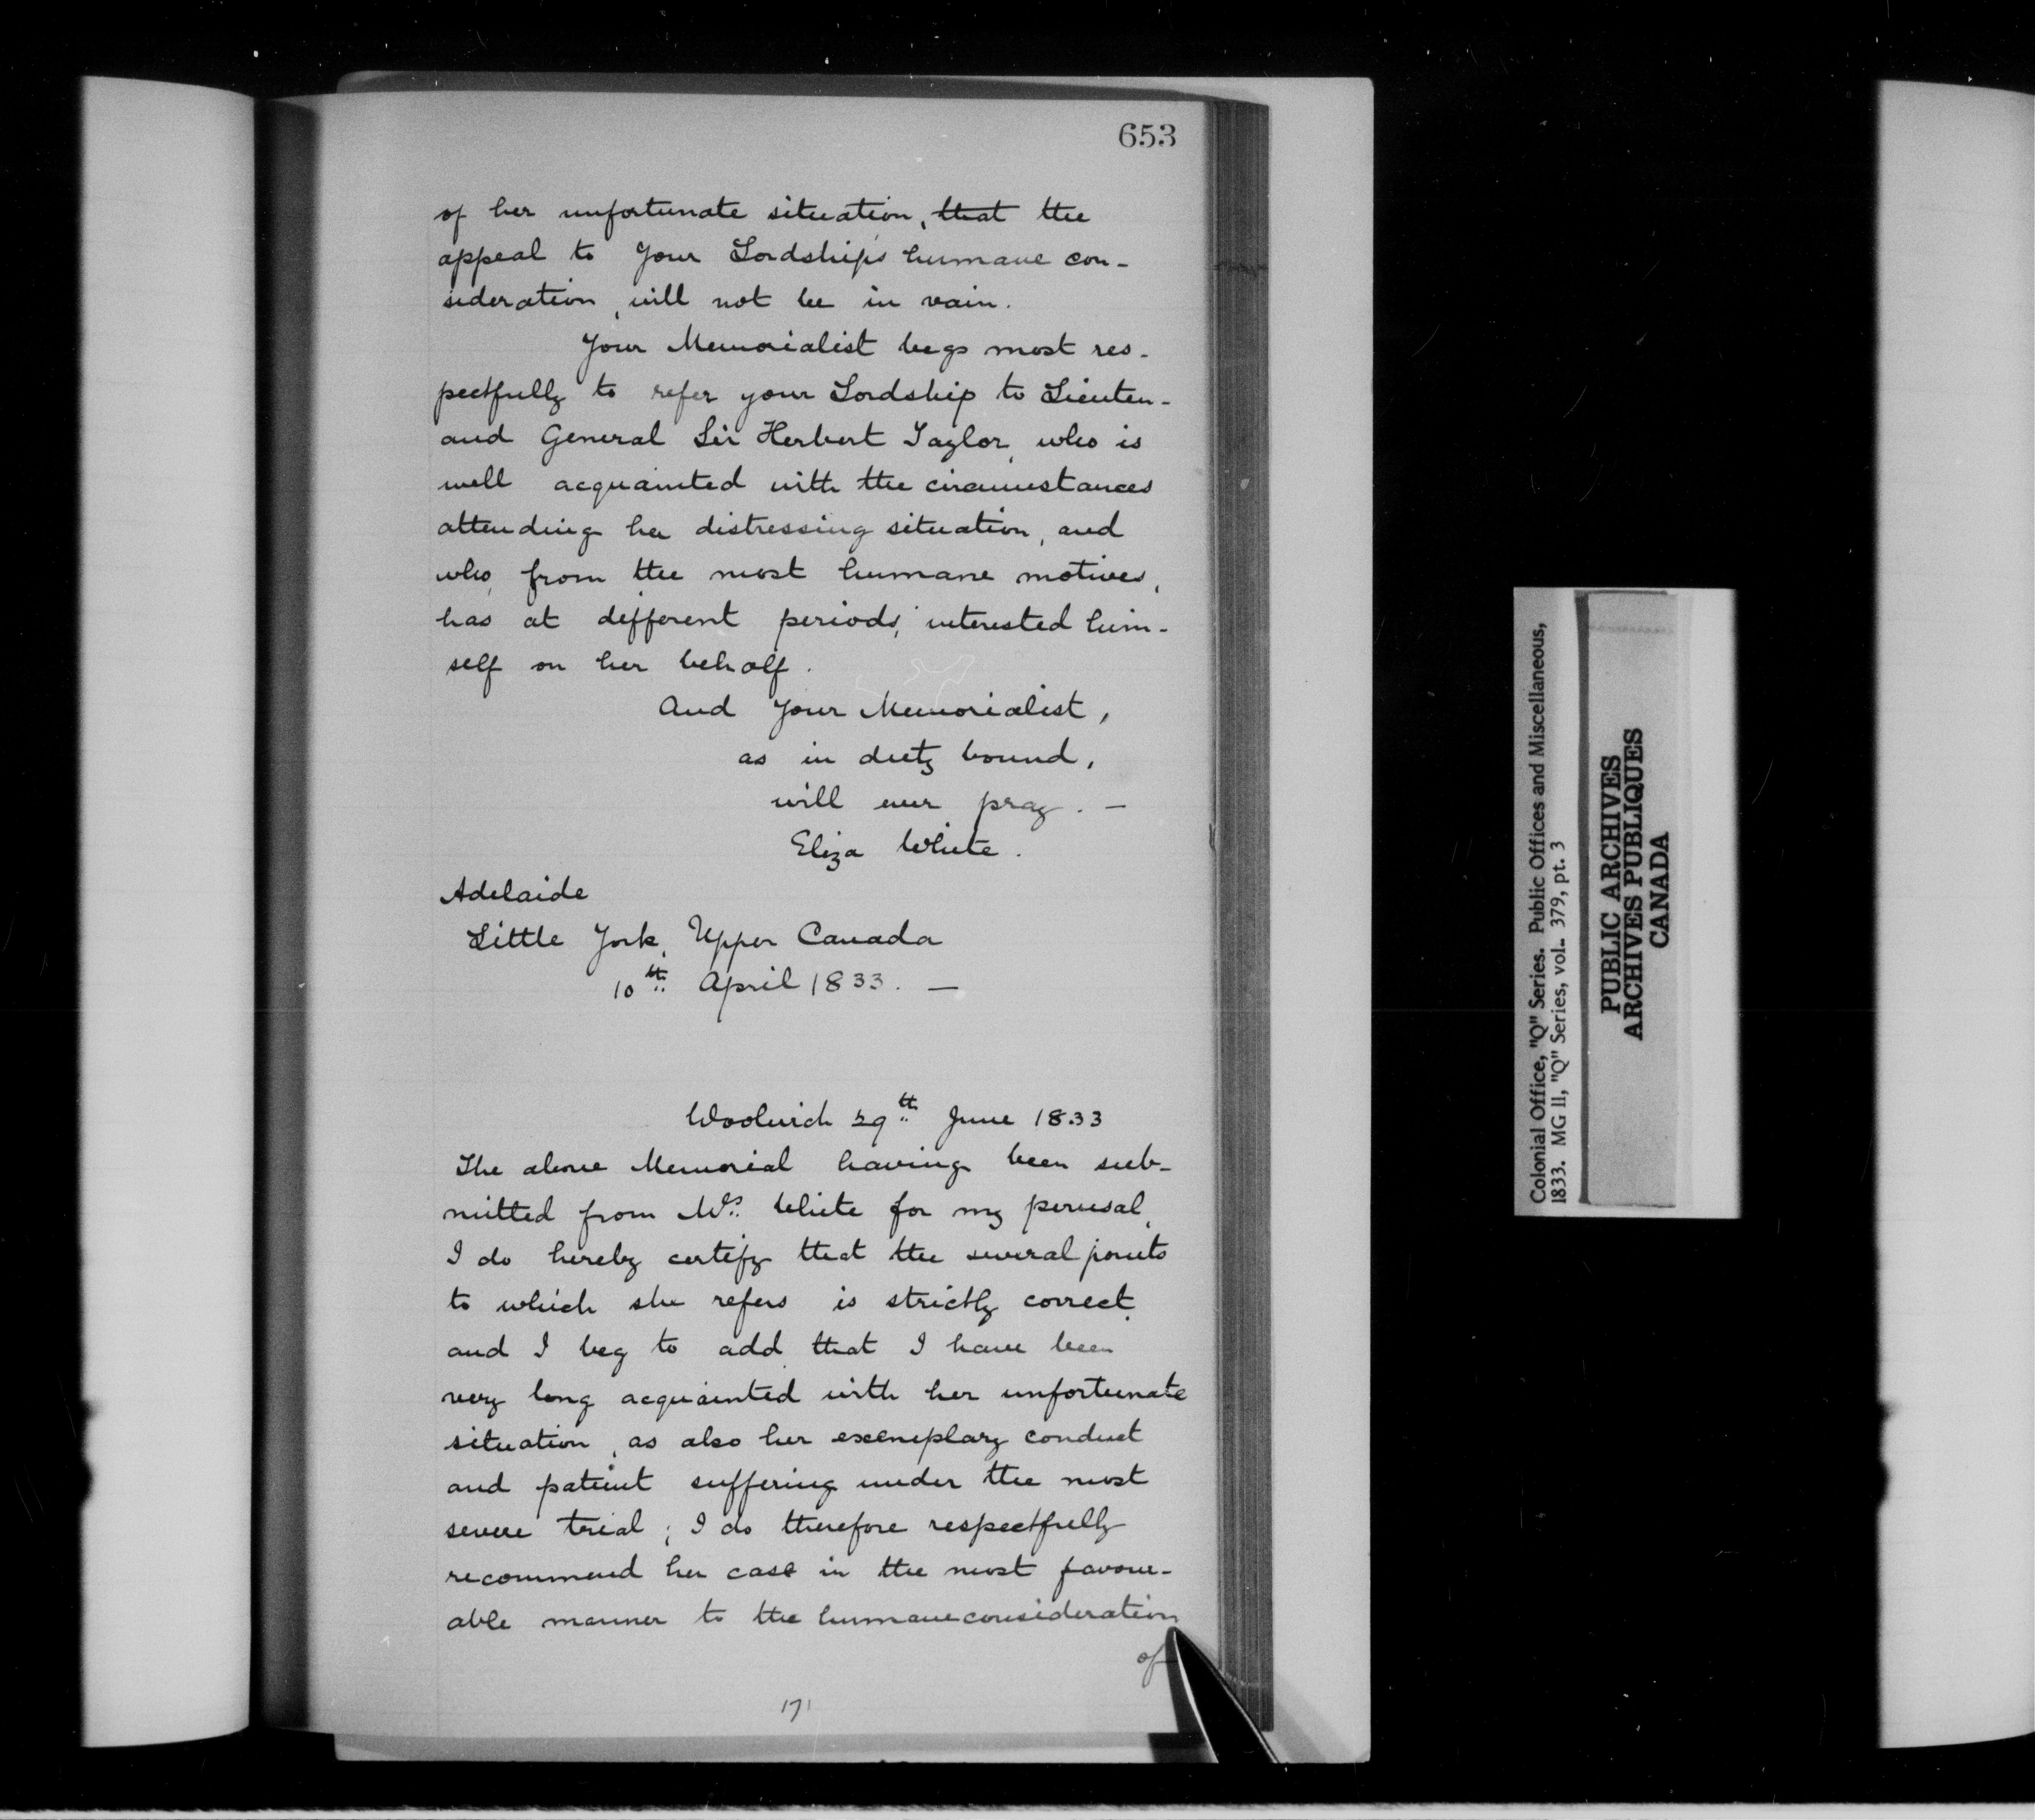 653
of her unfortunate situation, that the
appeal to Your Lordship's humane con-
sideration, will not be in vain.
Your Memorialist begs most res-
pectfully to refer your Lordship to Lieuten-
and General Sir Herbert Taylor, who is
well acquainted with the circumstances
attending her distressing situation, and
who, from the most humane motives,
has at different periods, interested him-
self on her behalf.
And Your Memorialist,
as in duty bound,
will ever pray. —
Eliza White.
Adelaide
Little York, Upper Canada
10th April 1833. —
Woolwich 29th June 1833
The above Memorial having been sub-
mitted from Mrs. White for my perusal,
I do hereby certify that the several points
to which she refers is strictly correct,
and I beg to add, that I have been
very long acquainted with her unfortunate
situation, as also her exemplary conduct
and patient suffering under the most
severe trial; I do therefore respectfully
recommend her case in the most favour-
able manner to the humane consideration
of
171
Colonial Office, "Q" Series. Public Offices and Miscellaneous,
1833. MG 11, "Q" Series, vol. 379, pt. 3
PUBLIC ARCHIVES
ARCHIVES PUBLIQUES
CANADA